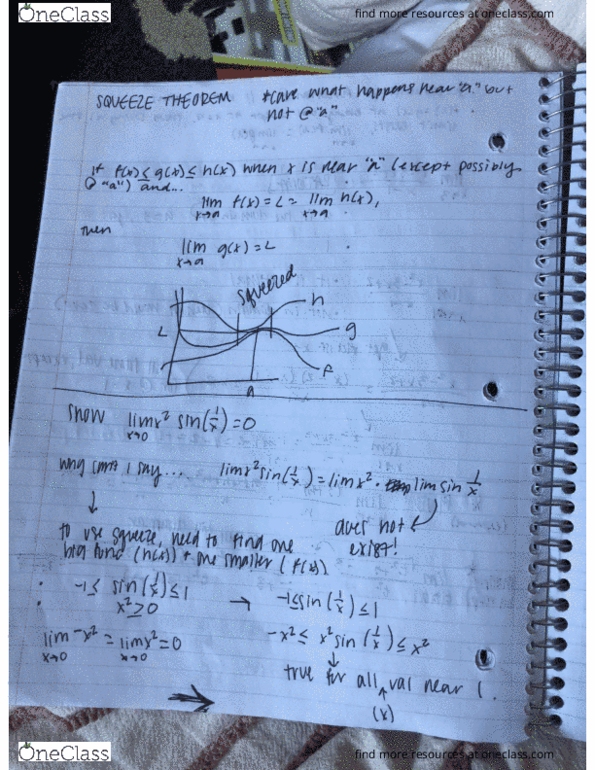 OneClass
find more resources at oneclass.com
SQUEEZE THEOREM *care what happens near "a" but
not @ "a"
if f(x) ≤ g(x) ≤ h(x) when x is near "a" (except possibly
@ "a") and...
lim x→a f(x) = L = lim x→a h(x),
then
lim x→a g(x) = L
squeezed
h
L
g
f
A
show lim x→0 x² sin(1/x) = 0
why can't I say... lim x² sin(1/x) = lim x² · lim sin 1/x
does not
exist!
to use squeeze, need to find one
big func (h(x)) + one smaller (f(x))
-1 ≤ sin(1/x) ≤ 1 → -1 ≤ sin(1/x) ≤ 1
x² ≥ 0
-x² ≤ x² sin(1/x) ≤ x²
lim x→0 -x² = lim x→0 x² = 0
true for all val near
(x)
OneClass
find more resources at oneclass.com